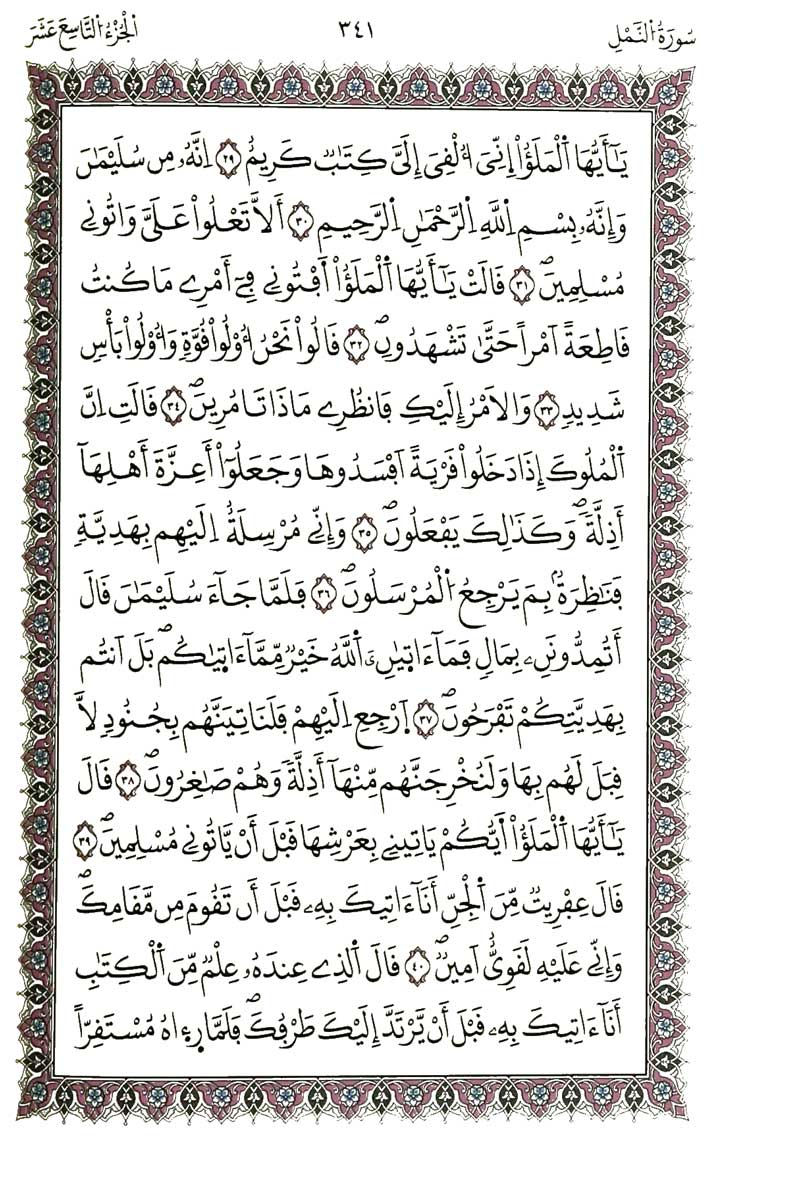 سُورَةُ النَّمْلِ ٣٤١ الْجُزْءُ التَّاسِعَ عَشَرَ
يَٰٓأَيُّهَا اَ۬لْمَلَؤُاْ اِنِّيَ أُلْقِيَ إِلَيَّ كِتَٰبٞ كَرِيمٌ ٢٩ اِنَّهُۥ مِن سُلَيْمَٰنَ
وَإِنَّهُۥ بِسْمِ اِ۬للَّهِ اِ۬لرَّحْمَٰنِ اِ۬لرَّحِيمِ ٣٠ أَلَّا تَعْلُواْ عَلَيَّ وَاتُونِے
مُسْلِمِينَۖ ٣١ قَالَتْ يَٰٓأَيُّهَا اَ۬لْمَلَؤُاْ اَفْتُونِے فِےٓ أَمْرِے مَا كُنتُ
قَاطِعَةً اَمْراً حَتَّىٰ تَشْهَدُونِۖ ٣٢ قَالُواْ نَحْنُ أُوْلُواْ قُوَّةٖ وَأُوْلُواْ بَأْسٖ
شَدِيدٖ ٣٣ وَالَامْرُ إِلَيْكِ فَانظُرِے مَاذَا تَامُرِينَۖ ٣٤ قَالَتِ اِنَّ
اَ۬لْمُلُوكَ إِذَا دَخَلُواْ قَرْيَةً اَفْسَدُوهَا وَجَعَلُوٓاْ أَعِزَّةَ أَهْلِهَآ
أَذِلَّةٗۖ وَكَذَٰلِكَ يَفْعَلُونَۖ ٣٥ وَإِنِّے مُرْسِلَةٌ اِلَيْهِم بِهَدِيَّةٖ
فَنَاظِرَةُۢ بِمَ يَرْجِعُ اُ۬لْمُرْسَلُونَۖ ٣٦ فَلَمَّا جَآءَ سُلَيْمَٰنَ قَالَ
أَتُمِدُّونَنِۦ بِمَالٖ فَمَآ ءَاتَيٰنِۦَ اَ۬للَّهُ خَيْرٞ مِّمَّآ ءَاتَيٰكُمۖ بَلَ اَنتُم
بِهَدِيَّتِكُمْ تَفْرَحُونَۖ ٣٧ اَ۪رْجِعِ اِلَيْهِمْ فَلَنَاتِيَنَّهُم بِجُنُودٖ لَّا
قِبَلَ لَهُم بِهَا وَلَنُخْرِجَنَّهُم مِّنْهَآ أَذِلَّةٗ وَهُمْ صَٰغِرُونَۖ ٣٨ قَالَ
يَٰٓأَيُّهَا اَ۬لْمَلَؤُاْ اَيُّكُمْ يَاتِينِے بِعَرْشِهَا قَبْلَ أَنْ يَّاتُونِے مُسْلِمِينَۖ ٣٩
قَالَ عِفْرِيتٞ مِّنَ اَ۬لْجِنِّ أَنَآ ءَاتِيكَ بِهِۦ قَبْلَ أَن تَقُومَ مِن مَّقَامِكَۖ
وَإِنِّے عَلَيْهِ لَقَوِيٌّ اَمِينٞۖ ٤٠ قَالَ اَ۬لذِے عِندَهُۥ عِلْمٞ مِّنَ اَ۬لْكِتَٰبِ
أَنَآ ءَاتِيكَ بِهِۦ قَبْلَ أَنْ يَّرْتَدَّ إِلَيْكَ طَرْفُكَۖ فَلَمَّا رِء۪اهُ مُسْتَقِرّاً